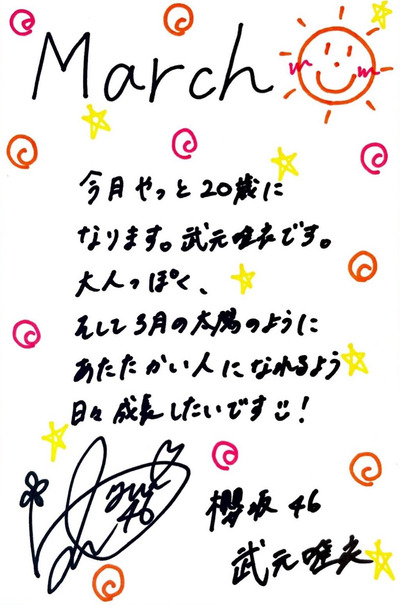 March
今月やっと20歳に
なります。武元唯衣です。
大人っぽく、
そして3月の太陽のように
あたたかい人になれるよう
日々成長したいです!
櫻坂46
武元唯衣